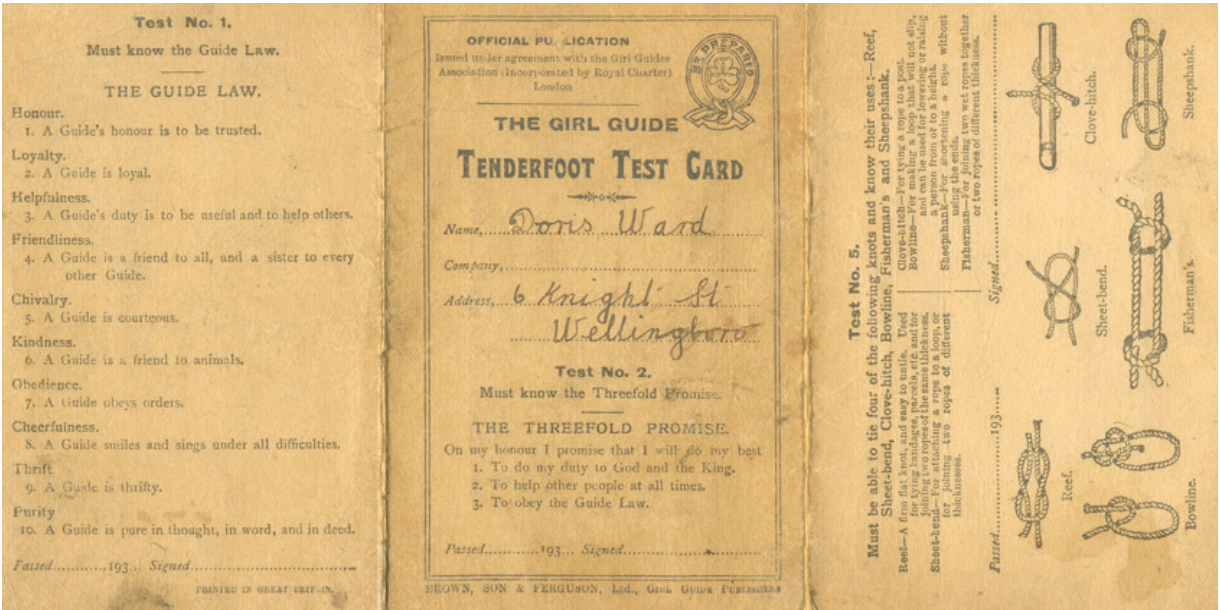 Test No. 1.
Must know the Guide Law.
THE GUIDE LAW.
Honour.
1. A Guide's honour is to be trusted.
Loyalty.
2. A Guide is loyal.
Helpfulness.
3. A Guide's duty is to be useful and to help others.
Friendliness.
4. A Guide is a friend to all, and a sister to every
other Guide.
Chivalry.
5. A Guide is courteous.
Kindness.
6. A Guide is a friend to animals.
Obedience.
7. A Guide obeys orders.
Cheerfulness.
8. A Guide smiles and sings under all difficulties.
Thrift.
9. A Guide is thrifty.
Purity
10. A Guide is pure in thought, in word, and in deed.
Passed...........193... Signed.................................
PRINTED IN GREAT BRITAIN.
OFFICIAL PU LICATION
Issued under agreement with the Girl Guides
Association (Incorporated by Royal Charter)
London
BE PREPARED
THE GIRL GUIDE
TENDERFOOT TEST CARD
Name, Doris Ward
Company,
Address, 6 Knight St
Wellingboro
Test No. 2.
Must know the Threefold Promise.
THE THREEFOLD PROMISE.
On my honour I promise that I will do my best
1. To do my duty to God and the King.
2. To help other people at all times.
3. To obey the Guide Law.
Passed............193... Signed............................
BROWN, SON & FERGUSON, Ltd., GIRL GUIDE PUBLISHERS
Test No. 5.
Must be able to tie four of the following knots and know their uses:—Reef,
Sheet-bend, Clove-hitch, Bowline, Fisherman's and Sheepshank.
Reef—A firm flat knot, and easy to untie. Used
for tying bandages, parcels, etc. and for
joining two ropes of the same thickness.
Sheet-bend—For attaching a rope to a loop, or
for joining two ropes of different
thicknesses.
Clove-hitch—For tying a rope to a post.
Bowline—For making a loop that will not slip,
and can be used for lowering or raising
a person from or to a height.
Sheepshank—For shortening a rope without
using the ends.
Fisherman—For joining two wet ropes together
or two ropes of different thickness.
Passed...............193...... Signed.................................
Reef.
Sheet-bend.
Clove-hitch.
Bowline.
Fisherman's.
Sheepshank.